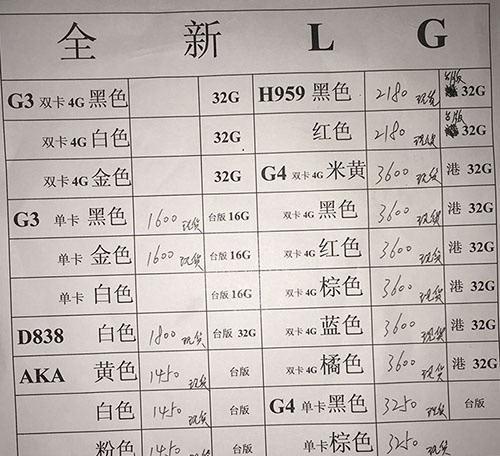 全 新 L G
G3 双卡 4G 黑色 32G H959 黑色 2180 现货 台版 32G
双卡 4G 白色 32G 红色 2180 现货 台版 32G
双卡 4G 金色 32G G4 双卡 4G 米黄 3600 现货 港 32G
G3 单卡 黑色 1600 现货 台版 16G 双卡 4G 黑色 3600 现货 港 32G
单卡 金色 1600 现货 台版 16G 双卡 4G 红色 3600 现货 港 32G
单卡 白色 台版 16G 双卡 4G 棕色 3600 现货 港 32G
D838 白色 1800 现货 台版 32G 双卡 4G 蓝色 3600 现货 港 32G
AKA 黄色 1450 现货 台版 双卡 4G 橘色 3600 现货 港 32G
白色 1450 现货 台版 G4 单卡 黑色 3250 现货 台版
粉色 1450 现货 台版 单卡 棕色 3250 现货